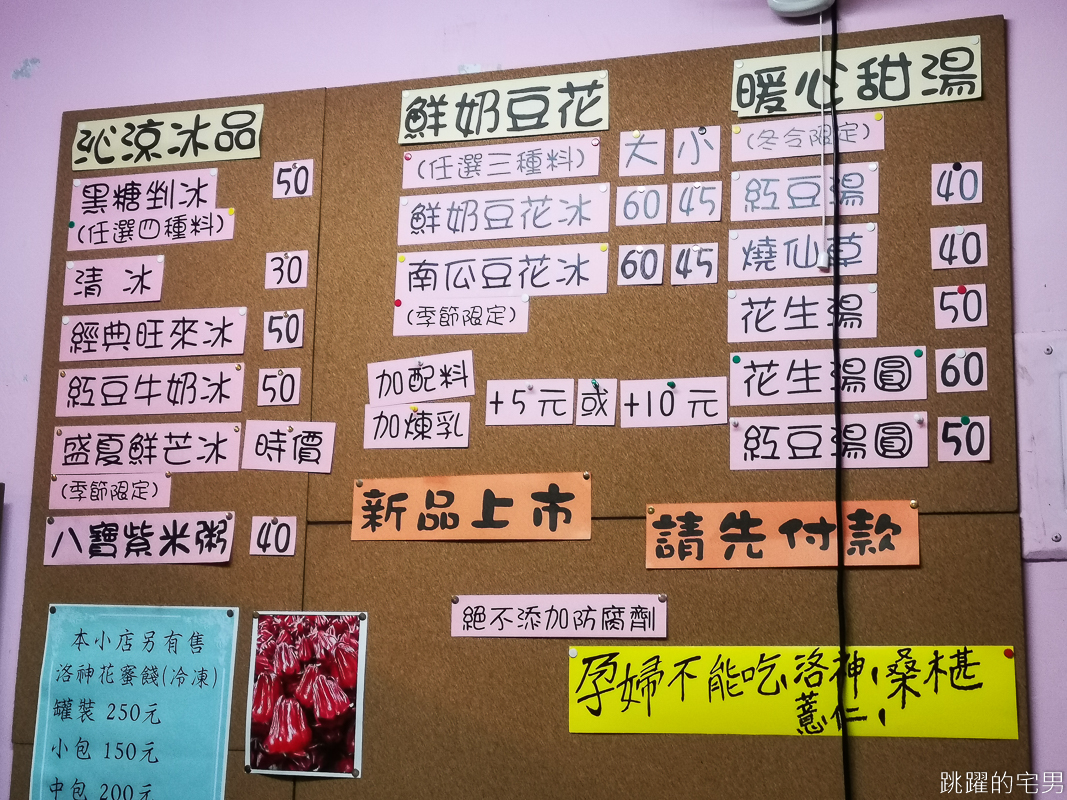 沁涼冰品
黑糖剉冰 50
(任選四種料)
清 冰 30
經典旺來冰 50
紅豆牛奶冰 50
盛夏鮮芒冰 時價
(季節限定)
八寶紫米粥 40
鮮奶豆花
(任選三種料) 大 小
鮮奶豆花冰 60 45
南瓜豆花冰 60 45
(季節限定)
加配料
加煉乳
+5元 或 +10元
暖心甜湯
(冬令限定)
紅豆湯 40
燒仙草 40
花生湯 50
花生湯圓 60
紅豆湯圓 50
新品上市
請先付款
絕不添加防腐劑
孕婦不能吃洛神,桑椹
薏仁,
本小店另有售
洛神花蜜餞(冷凍)
罐裝 250元
小包 150元
中包 200元
跳躍的宅男